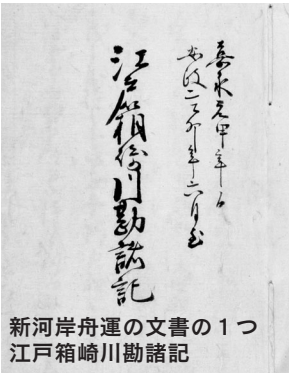 嘉永元申年ゟ
安政二乙卯年六月迄
江戸箱崎川勘諸記
新河岸舟運の文書の１つ
江戸箱崎川勘諸記